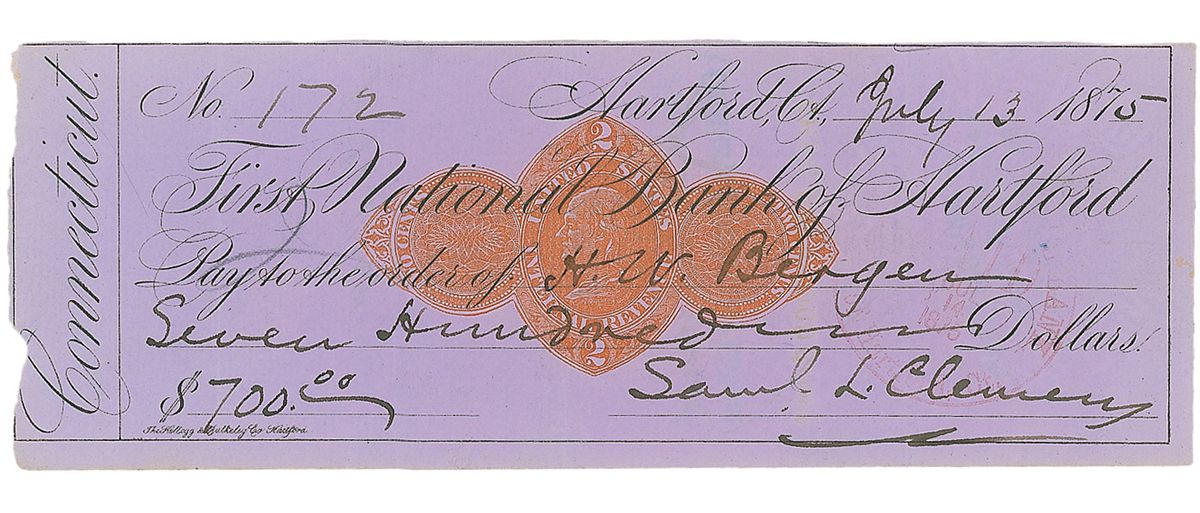 Connecticut.
No. 172 Hartford, Ct. July 13 1875
First National Bank of Hartford
Pay to the order of H. W. Bergen
Seven Hundred Dollars.
$700.00 Saml. L. Clemens
The Kellogg & Bulkeley Co. Hartford
2
UNITED STATES
INTERNAL REVENUE
TWO CENTS
2